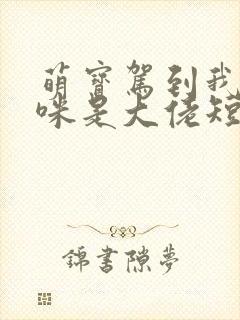 萌宝驾到我
咪是大佬短
錦書隙夢